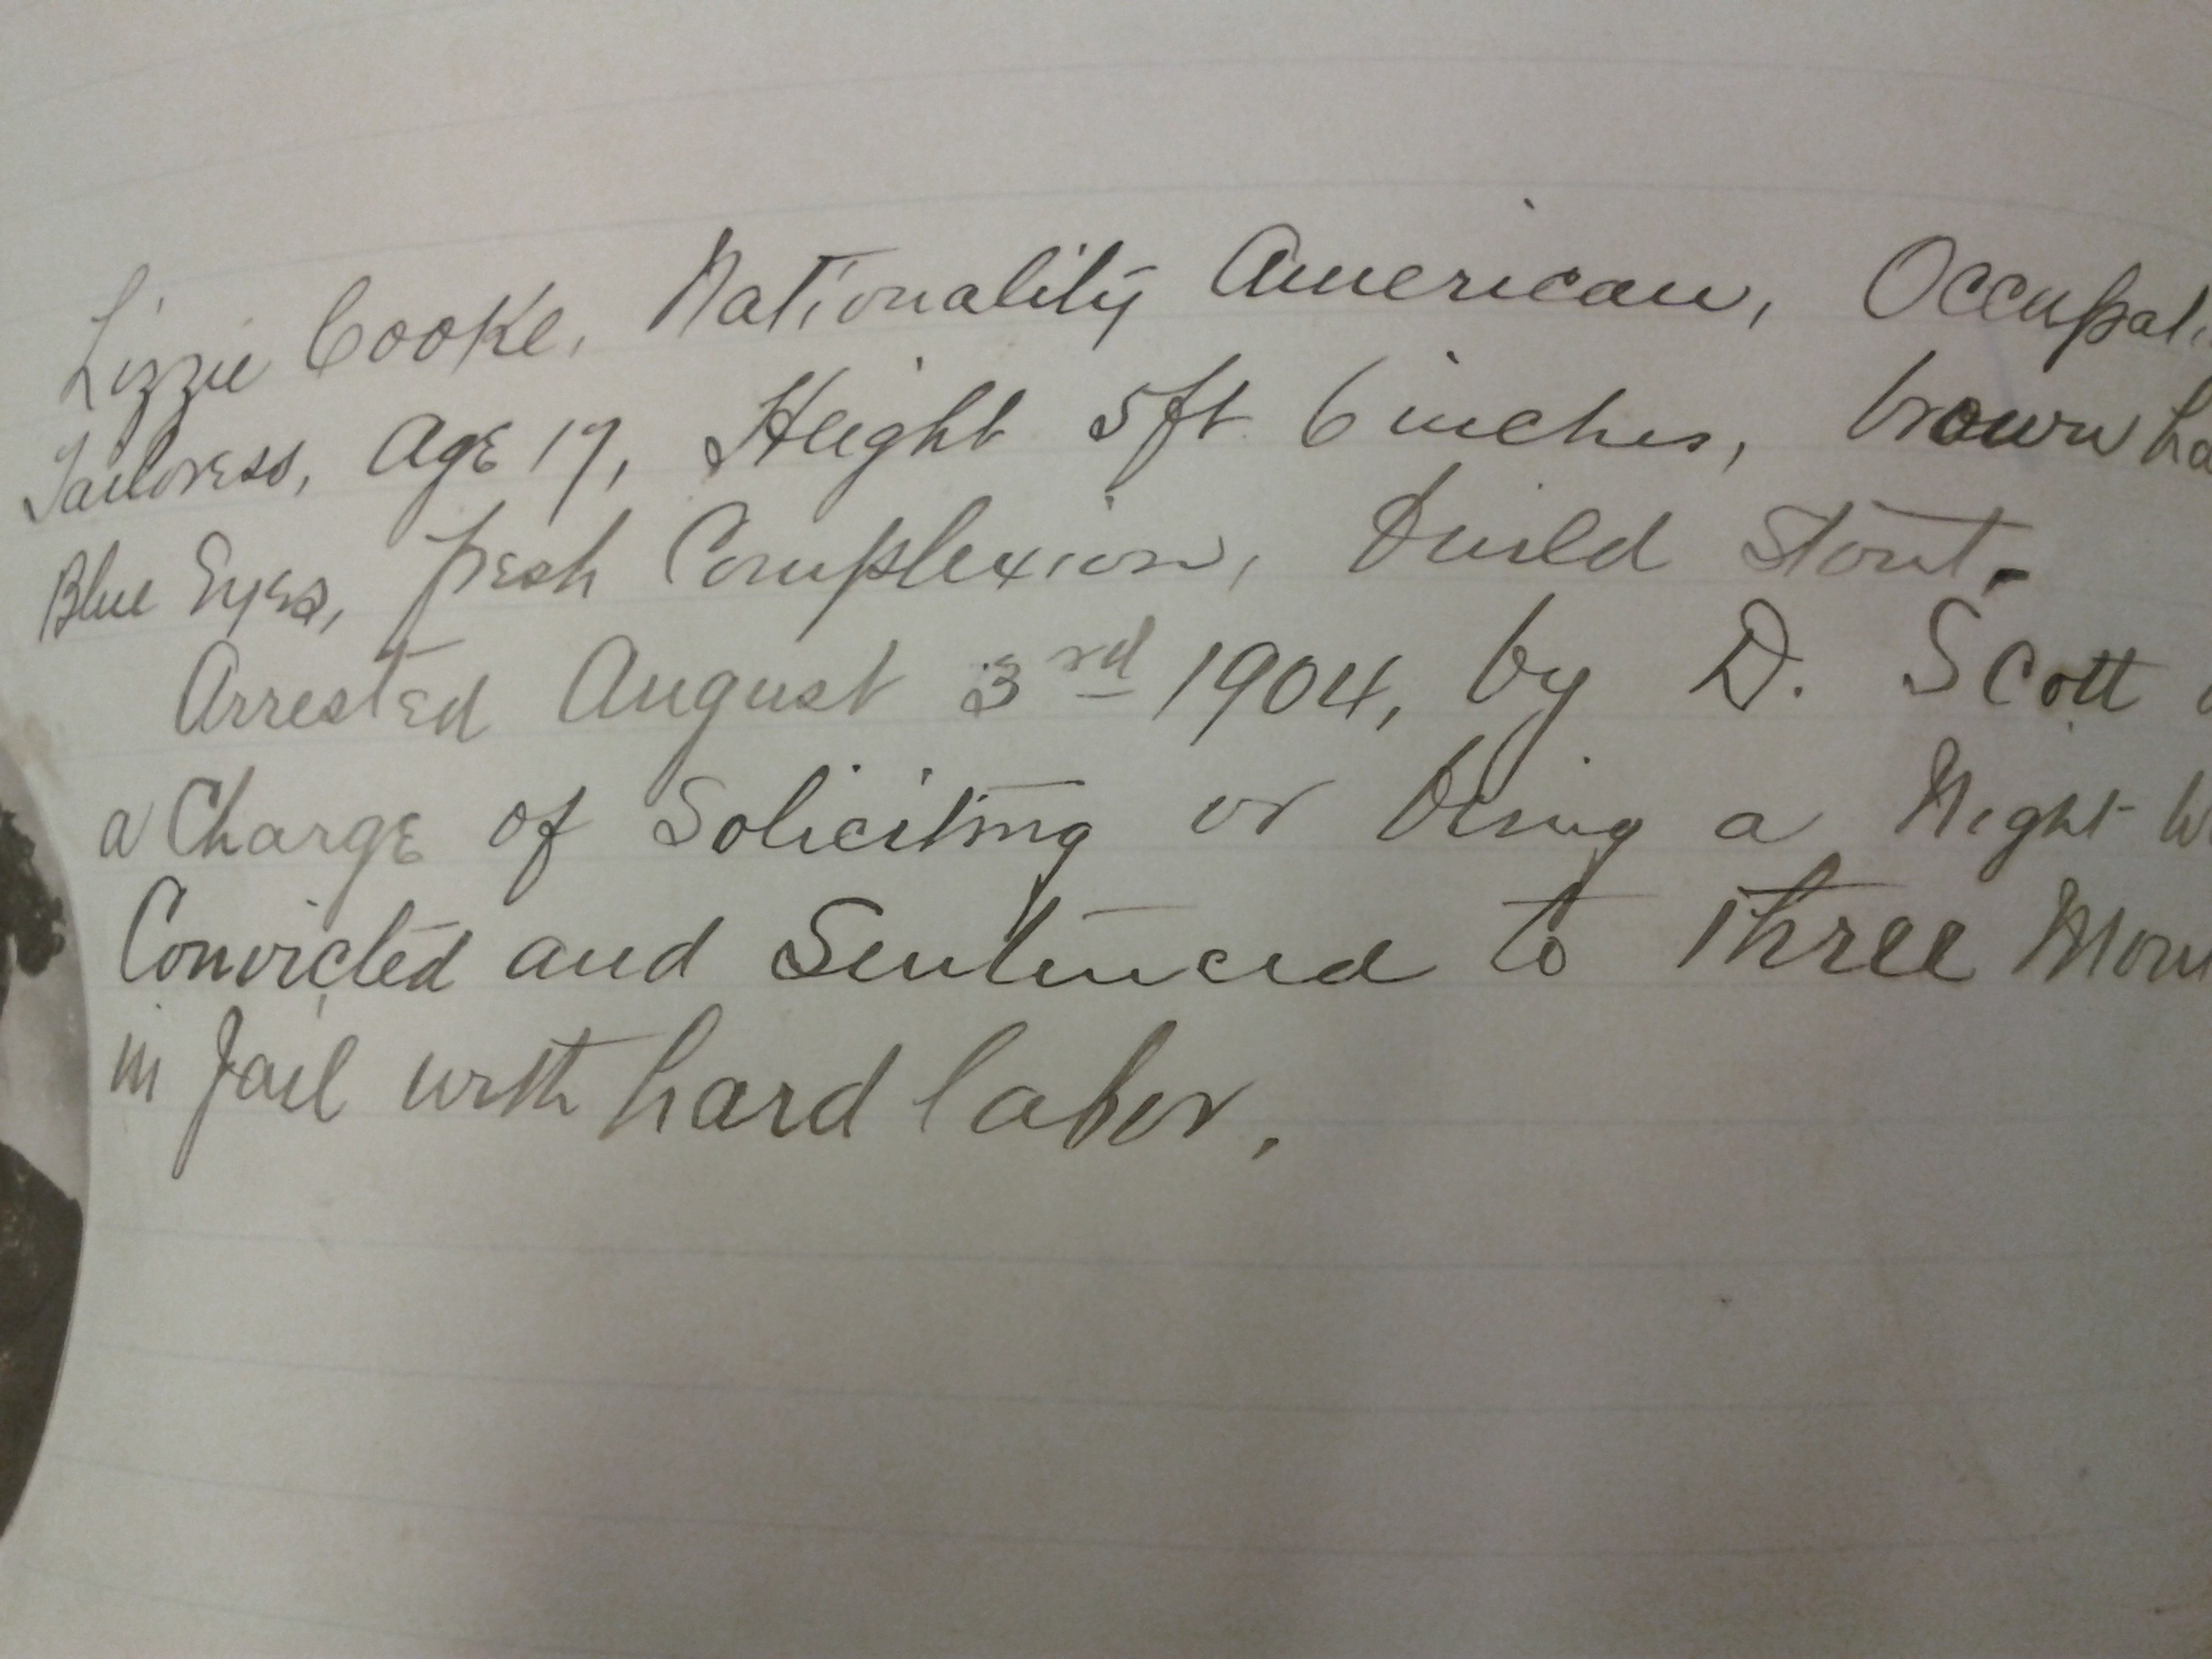 Lizzie Cooke, Nationality American, Occupati
Tailoress, Age 17, Height 5ft 6 inches, brown ha
Blue Eyes, fresh Complexion, Build Stout.
Arrested August 3rd 1904, by D. Scott
a Charge of Soliciting or being a Night W
Convicted and Sentenced to Three Mon
in Jail with hard labor.